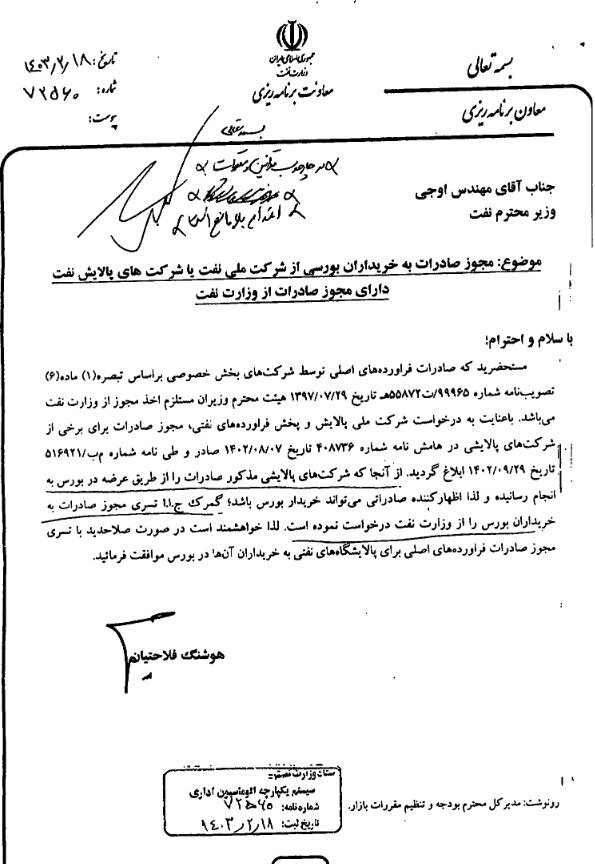 بسمه تعالی
معاون برنامه ریزی
جمهوری اسلامی ایران
وزارت نفت
معاونت برنامه ریزی
تاریخ: ۱۴۰۳/۲/۱۸
شماره: ۷۲۵۶۰
پیوست:
بسمه تعالی
در چارچوب قوانین و مقررات
اقدام بلامانع است
جناب آقای مهندس اوجی
وزیر محترم نفت
موضوع: مجوز صادرات به خریداران بورسی از شرکت ملی نفت یا شرکت های پالایش نفت
دارای مجوز صادرات از وزارت نفت
با سلام و احترام؛
مستحضرید که صادرات فراورده‌های اصلی توسط شرکت‌های بخش خصوصی براساس تبصره(۱) ماده(۶)
تصویب‌نامه شماره ۹۹۹۶۵/ت۵۵۸۷۲هـ تاریخ ۱۳۹۷/۰۷/۲۹ هیئت محترم وزیران مستلزم اخذ مجوز از وزارت نفت
می‌باشد. باعنایت به درخواست شرکت ملی پالایش و پخش فراورده‌های نفتی، مجوز صادرات برای برخی از
شرکت‌های پالایشی در هامش نامه شماره ۴۰۸۷۳۶ تاریخ ۱۴۰۲/۰۸/۰۷ صادر و طی نامه شماره م‌ب/۵۱۶۹۲۱
تاریخ ۱۴۰۲/۰۹/۲۹ ابلاغ گردید. از آنجا که شرکت‌های پالایشی مذکور صادرات را از طریق عرضه در بورس به
انجام رسانیده و لذا اظهارکننده صادراتی می‌تواند خریدار بورس باشد؛ گمرک ج.ا.ا تسری مجوز صادرات به
خریداران بورس را از وزارت نفت درخواست نموده است. لذا خواهشمند است در صورت صلاحدید با تسری
مجوز صادرات فراورده‌های اصلی برای پالایشگاه‌های نفتی به خریداران آن‌ها در بورس موافقت فرمائید.
هوشنگ فلاحتیان
ستاد وزارت نفت
سیستم یکپارچه اتوماسیون اداری
شماره نامه: ۷۲۵۶۰
تاریخ ثبت: ۱۴۰۳/۲/۱۸
رونوشت: مدیرکل محترم بودجه و تنظیم مقررات بازار.